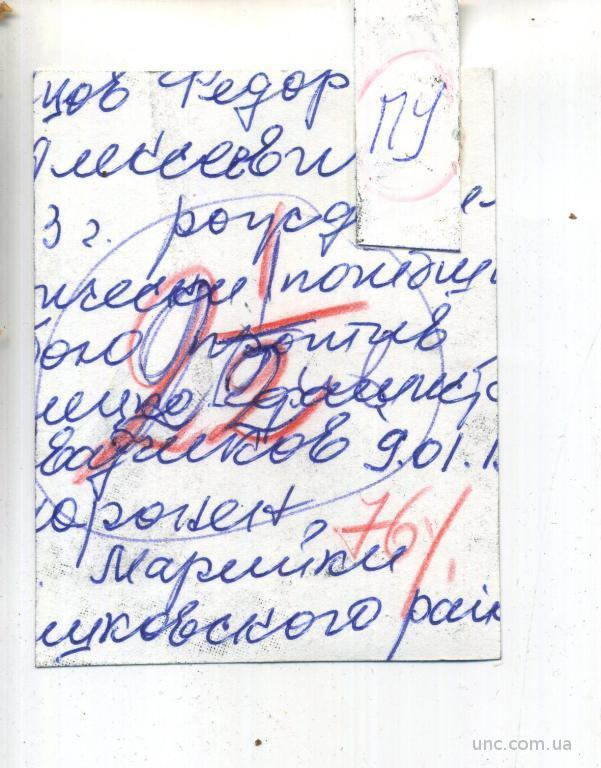 цов Федор
лексееви
ПУ
3 г. рожд е-
ически погибш
бою против
мецко фашистс
ватчиков 9.01.1
хоронен
2 1/2
76%
. Марийки
шковского райо
unc.com.ua